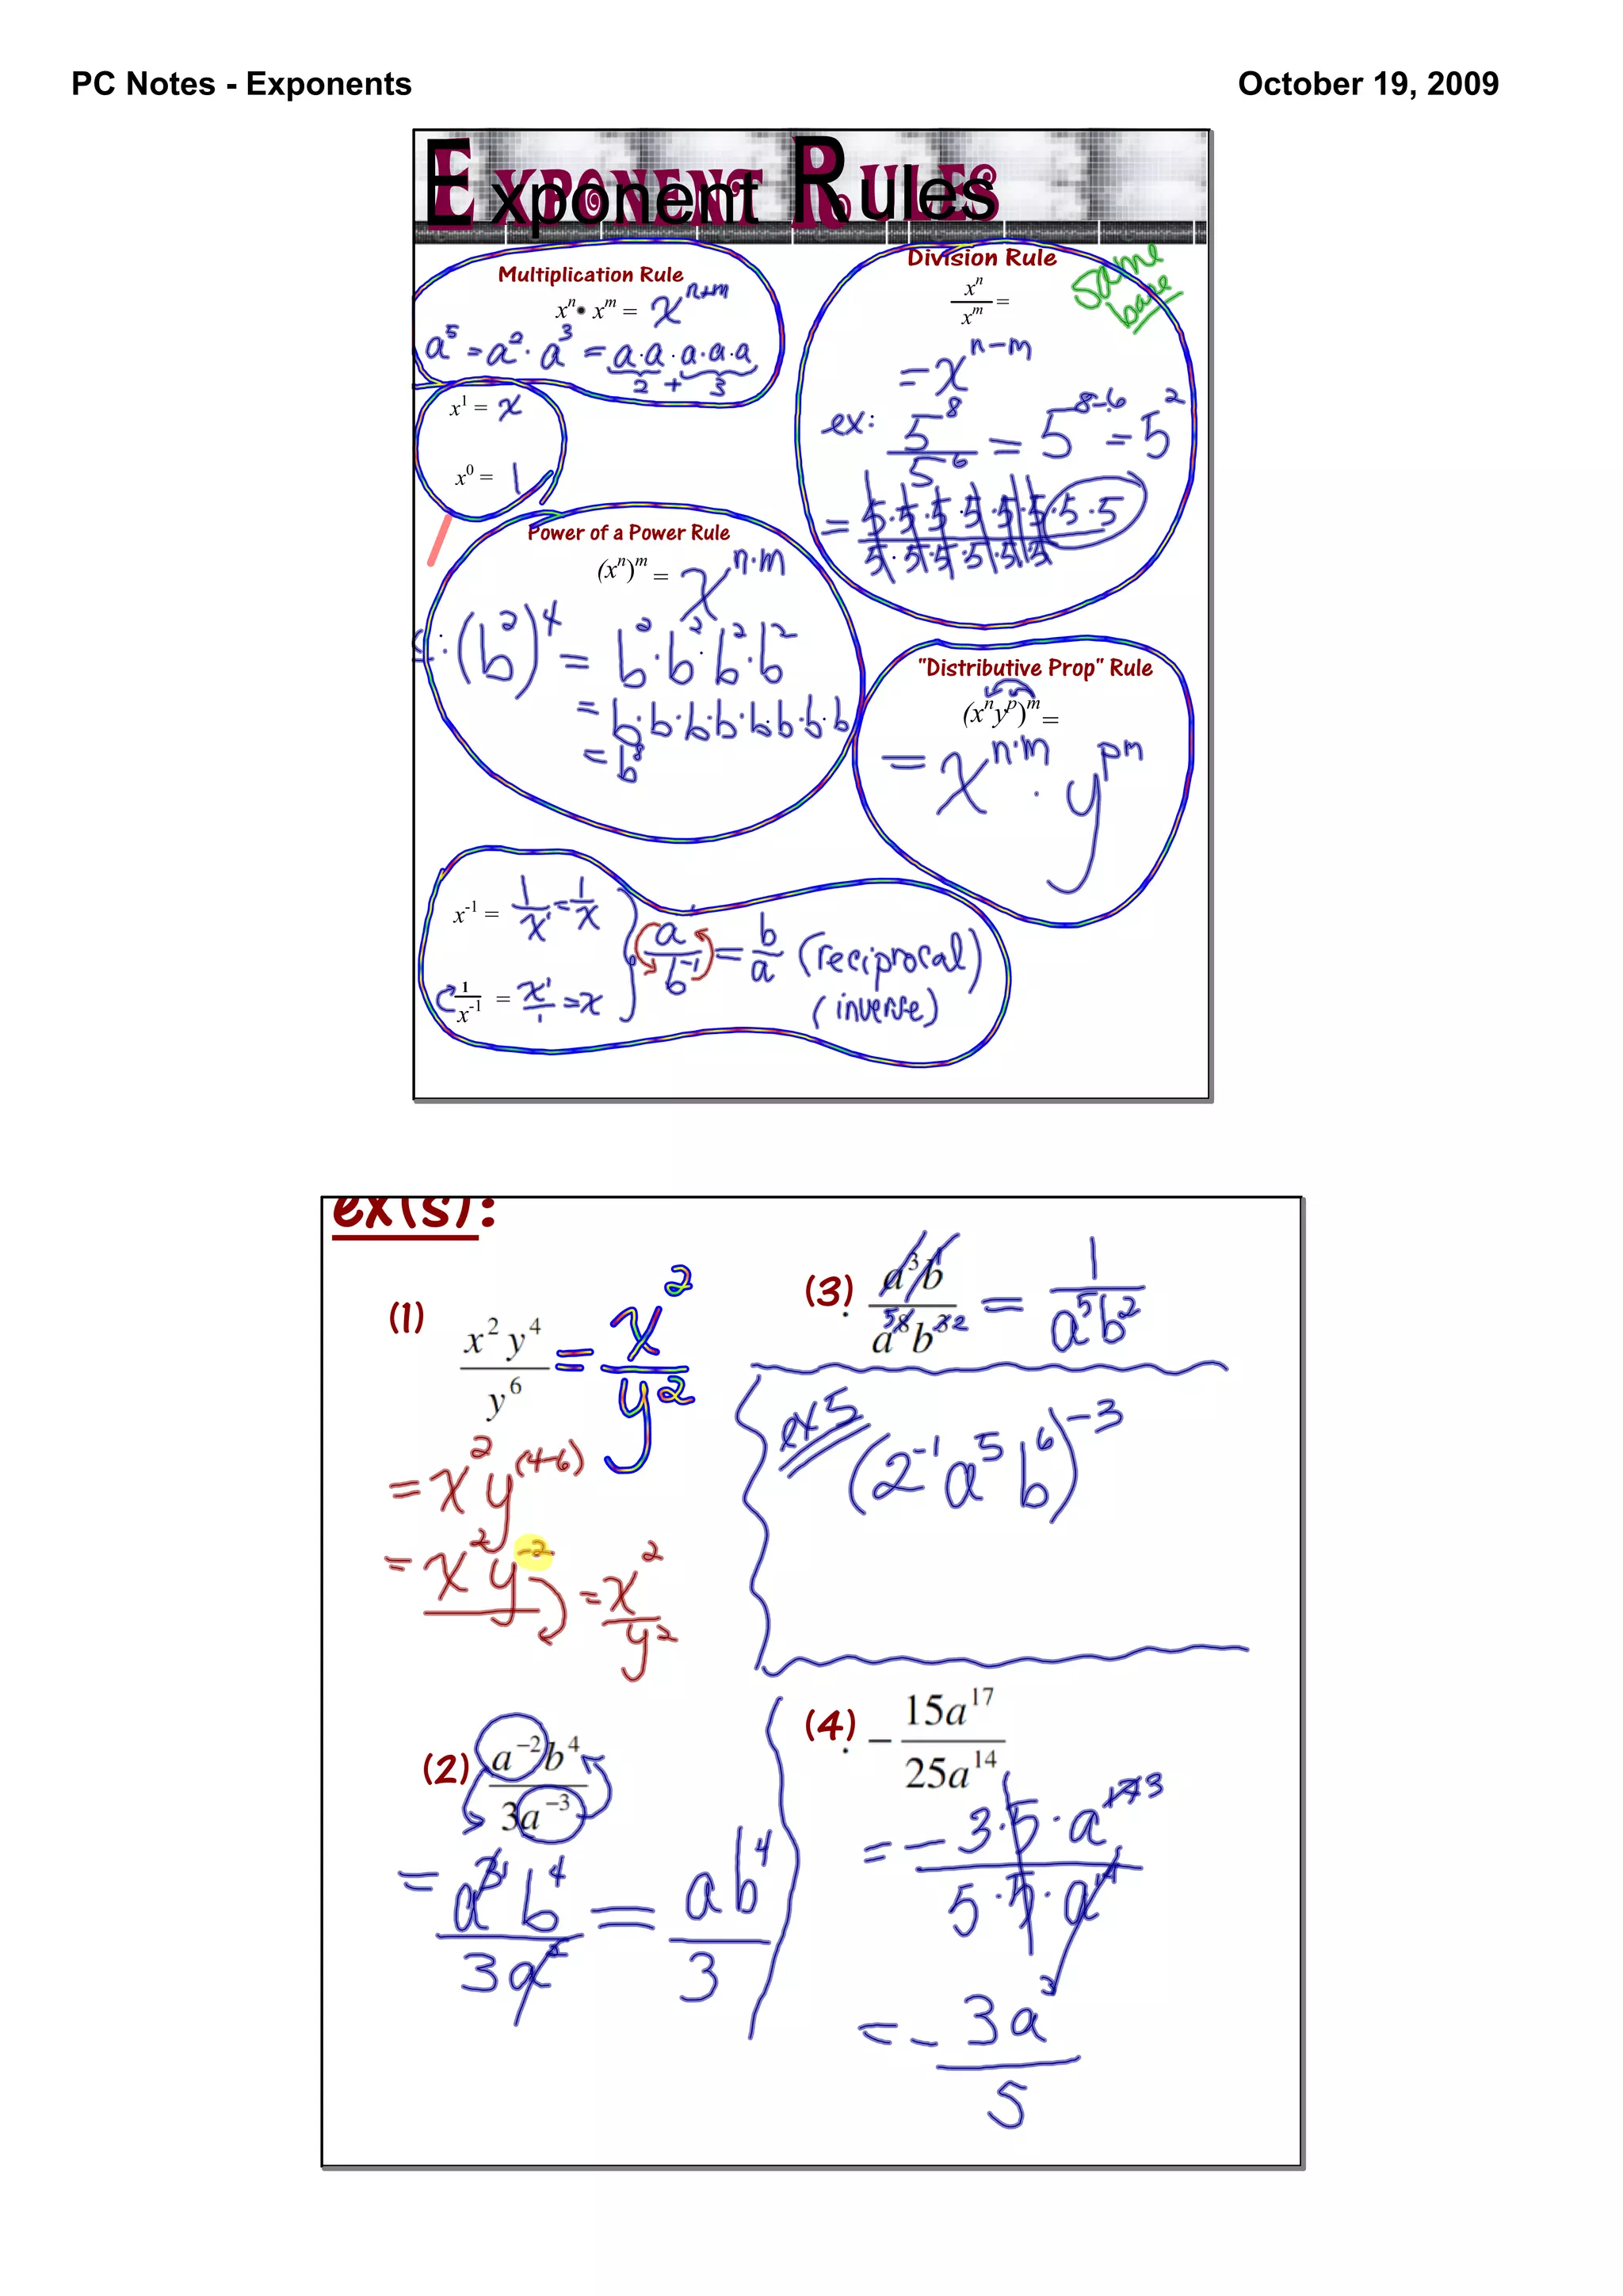 PC Notes - Exponents
October 19, 2009
Exponent Rules
Multiplication Rule
xⁿ • xᵐ = xⁿ⁺ᵐ
a⁵ = a² · a³ = a·a · a·a·a
2 + 3
x¹ = x
x⁰ = 1
Division Rule
same base
xⁿ/xᵐ =
= xⁿ⁻ᵐ
ex: 5⁸/5⁶ = 5⁸⁻⁶ = 5²
= 5·5·5·5·5·5·5·5 / 5·5·5·5·5·5
Power of a Power Rule
(xⁿ)ᵐ = xⁿ·ᵐ
: (b²)⁴ = b²·b²·b²·b²
= b·b·b·b·b·b·b·b
= b⁸
"Distributive Prop" Rule
(xⁿyᵖ)ᵐ =
= xⁿ·ᵐ · yᵖᵐ
x⁻¹ = 1/x¹ = 1/x
1/x⁻¹ = x¹/1 = x
a⁻¹/b⁻¹ = b/a (reciprocal)
(inverse)
ex(s):
(1) x²y⁴/y⁶ = x²/y²
= x²y⁽⁴⁻⁶⁾
= x²y⁻² = x²/y²
(2) a⁻²b⁴/3a⁻³
= a³b⁴/3a² = ab⁴/3
(3) a³b/a⁸b³ = 1/a⁵b²
ex 5 (2⁻¹a⁵b⁶)⁻³
(4) - 15a¹⁷/25a¹⁴
= - 3·5·a¹⁷/5·5·a¹⁴
= - 3a³/5